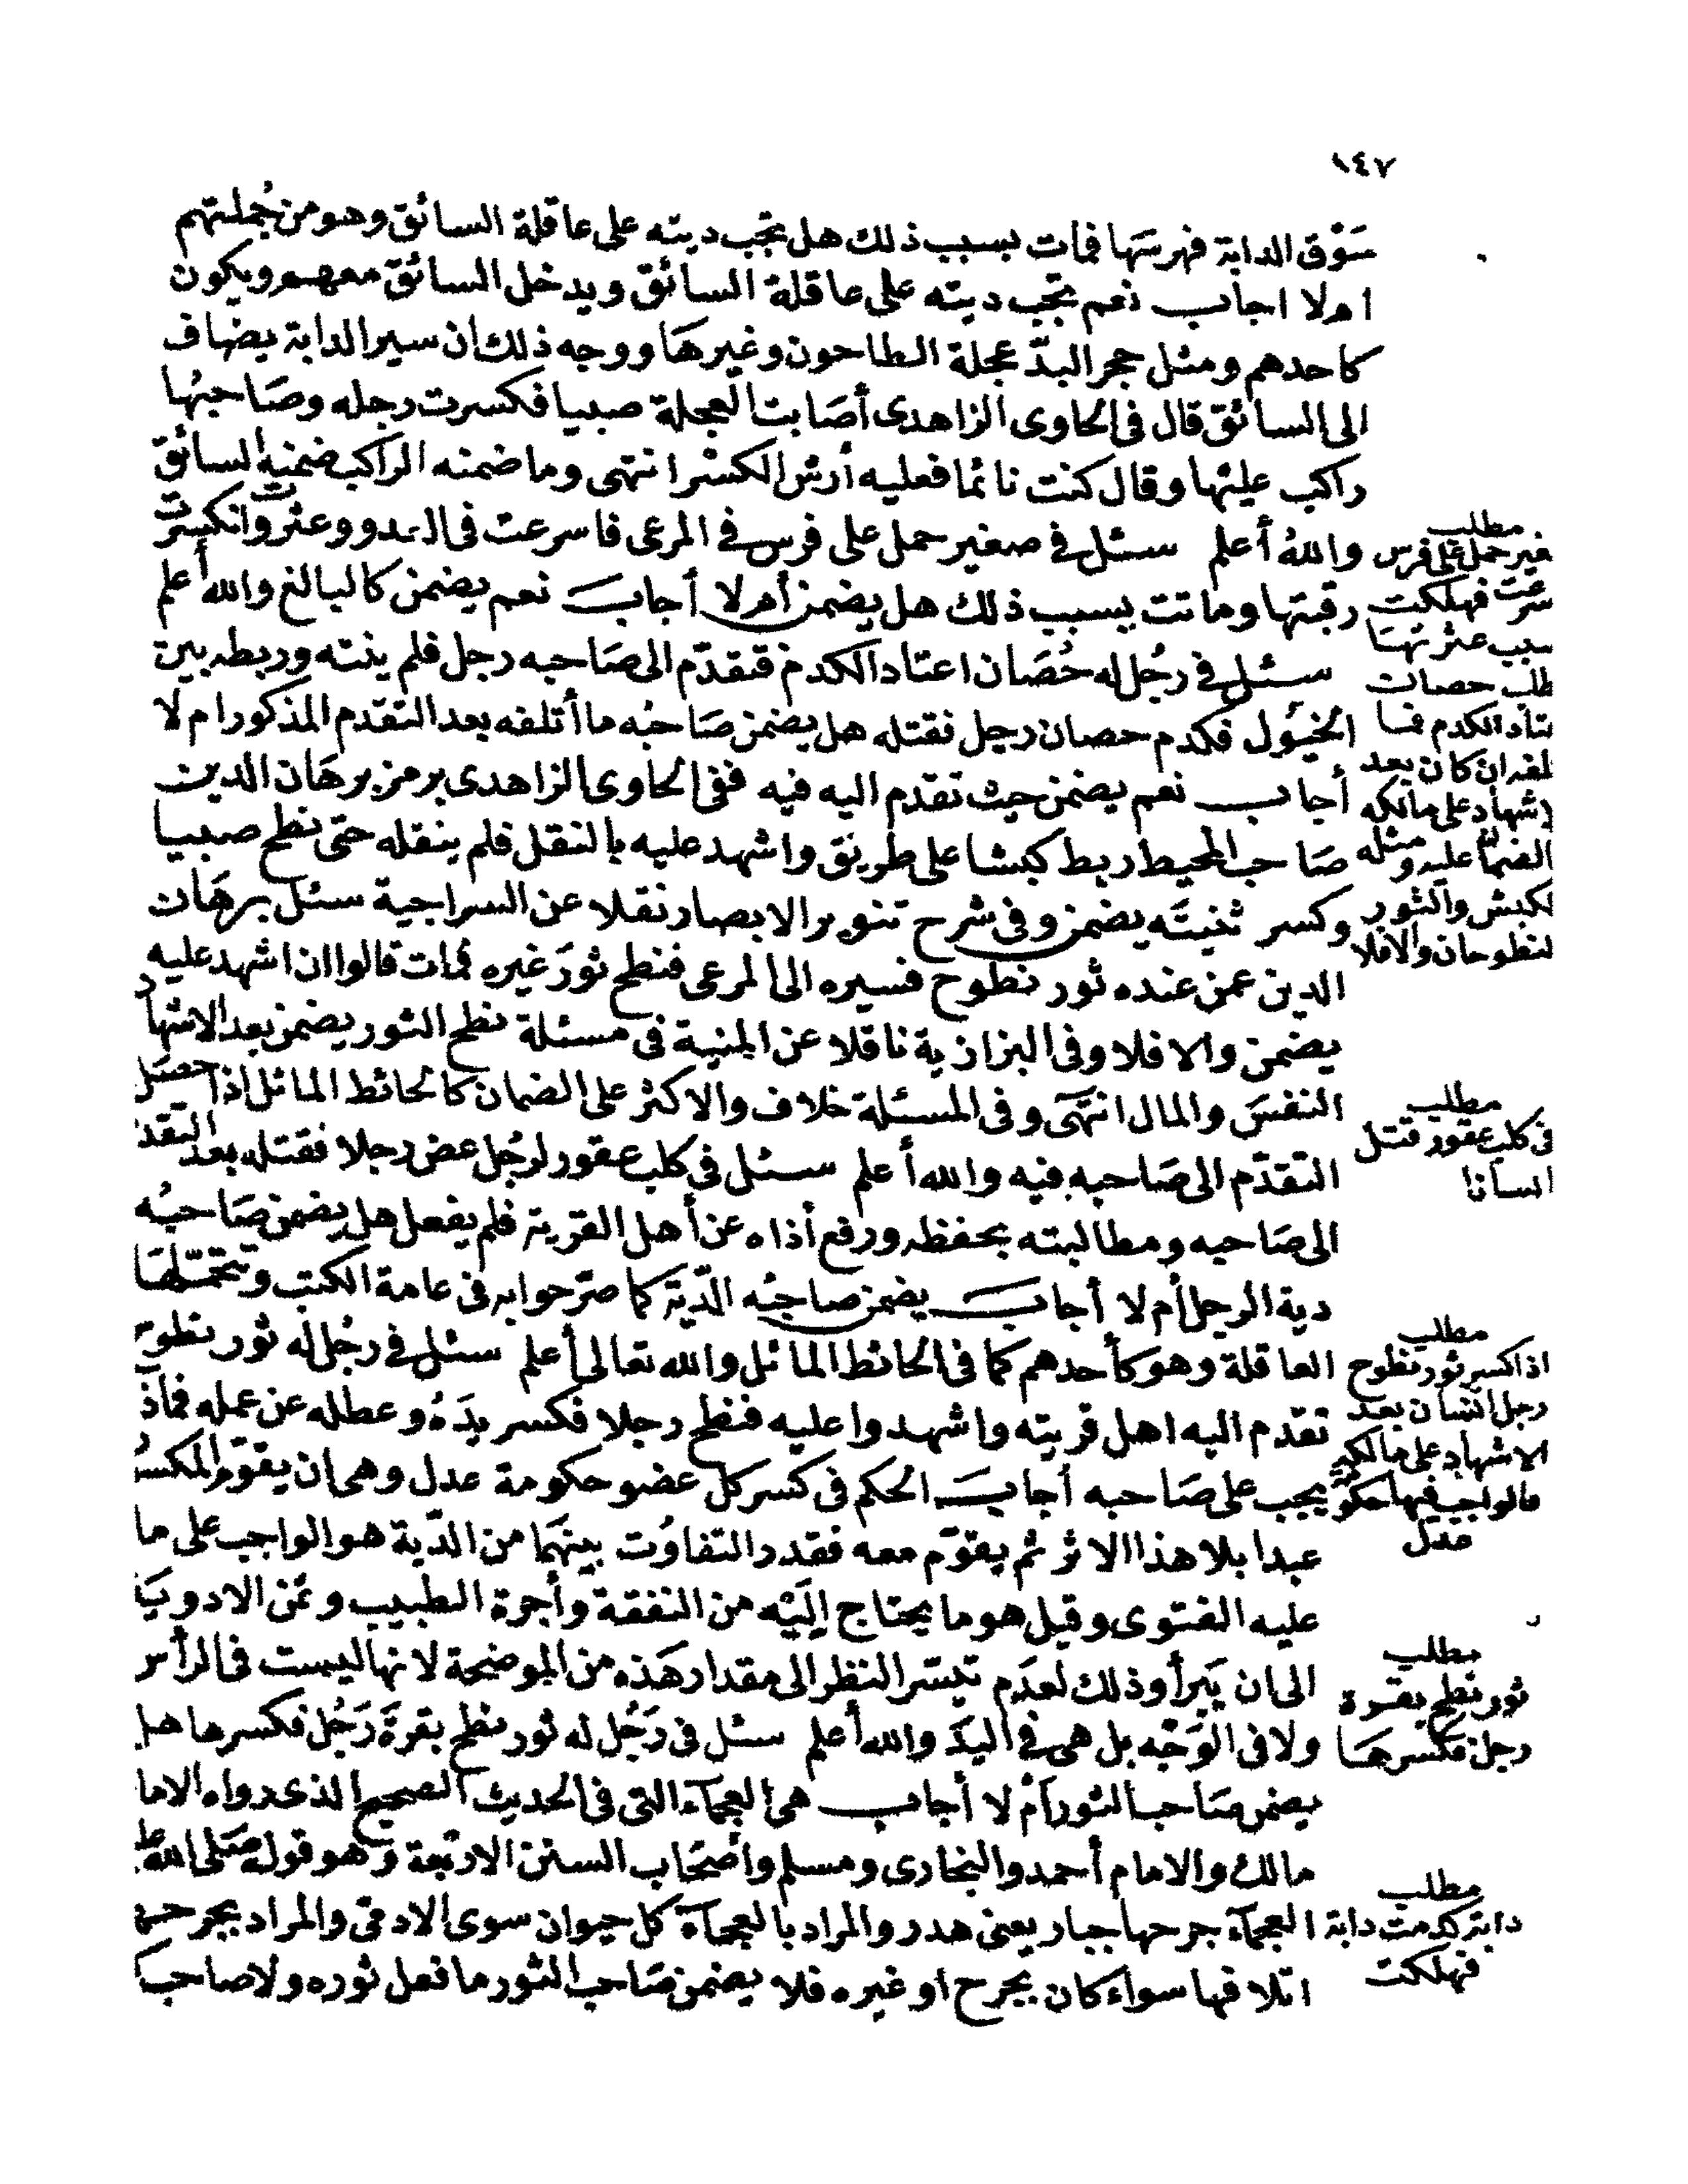 ١٤٧
سَوْق الدابة فهرستها فمات بسبب ذلك هل تجب ديته على عاقلة السائق وهو من جُملتهم
ام لا اجاب نعم تجب ديته على عاقلة السائق ويدخل السائق معهم ويكون
كاحدهم ومثل حجر البدّ عجلة الطاحون وغيرها ووجه ذلك ان سير الدابة يضاف
الى السائق قال فى الحاوى الزاهدى أصابت العجلة صبيا فكسرت رجله وصاحبُها
راكب عليْها وقال كنت نائما فعليه أرش الكسْر انتهى وما ضمنه الراكب ضمنه السائق
والله أعلم سئل فى صغير حمل على فرس فى المرعى فاسرعت فى العدو وعثرت وانكسرت
رقبتها وماتت بسبب ذلك هل يضمن أم لا أجاب نعم يضمن كالبالغ والله أعلم
سئل فى رجُل له حُصَان اعتاد الكدم فتقدّم الى صَاحبه رجل فلم ينته وربطه بين
الخيُول فكدم حصان رجل فقتله هل يضمن صَاحبُه ما أتلفه بعد التقدم المذكور ام لا
أجاب نعم يضمن حيث تقدم اليه فيه ففى الحاوى الزاهدى برمز برهَان الدين
صَاحب المحيط ربط كبشا على طريق واشهد عليه بالنقل فلم ينقله حتى نطح صبيا
وكسر ثنيتَه يضمن وفى شرح تنوير الابصار نقلا عن السراجية سئل برهَان
الدين عمن عنده ثور نطوح فسيره الى المرعى فنطح ثورَ غيره فمات قالوا ان اشهد عليه
يضمن والا فلا وفى البزازية ناقلا عن المنية فى مسئلة نطح الثور يضمن بعد الاشهاد
النفسَ والمال انتهَى وفى المسئلة خلاف والاكثر على الضمان كالحائط المائل اذا حصَل
التقدّم الى صَاحبه فيه والله أعلم سئل فى كلب عقور لرجُل عض رجلا فقتله بعد التقد
الى صَاحبه ومطالبته بحفظه ورفع أذاه عن أهل القرية فلم يفعل هل يضمن صَاحبُه
دية الرجل أم لا أجاب يضمن صاحبُه الدّيَة كما صرّحوا به فى عامة الكتب وتتحمّلهَا
العاقلة وهو كأحدهم كما فى الحائط المائل والله تعالى أعلم سئل فى رجُل له ثور نطوح
تقدم اليه اهل قريته واشهدوا عليه فنطح رجلا فكسر يدَهُ وعطله عن عمله فماذ
يجب على صَاحبه أجاب الحكم فى كسر كل عضو حكومة عدل وهى ان يقوّم المكسُو
عبدا بلا هذا الاثر ثم يقوّم معه فقدر التفاوُت بينهمَا من الدّية هو الواجب على ما
عليه الفتوى وقيل هو ما يحتاج إليْه من النفقة وأجرة الطبيب وثمن الادويَة
الى ان يَبرأ وذلك لعدَم تيسّر النظر الى مقدار هَذه من الموضحة لانها ليست فى الرأس
ولا فى الوَجْه بل هى فى اليدّ والله أعلم سئل فى رَجُل له ثور نطح بقرةَ رَجُل فكسرها هل
يضمن صَاحب الثور أم لا أجاب هى العجمآء التى فى الحديث الصحيح الذى رواه الاما
مالك والامام أحمد والبخارى ومسلم وأصحَاب السنن الاربَعة وَهو قوله صَلى الله عل
العجمآء جرحها جبار يعنى هدر والمراد بالعجمآء كل حيوان سوى الادمى والمراد بجرحها
اتلافها سواء كان بجرح او غيره فلا يضمن صَاحب الثور ما فعل ثوره ولا صاحب
مطلب
غير حمل على فرس
سرعت فهلكت
سبب عثرتهَا
طلب حصان
تاد الكدم فما
لفه ان كان بعد
شهاد على مالكه
الضمان عليه ومثله
لكبش والثور
لنطوحان والا فلا
مطلب
فى كلب عقور قتل
انسانا
مطلب
اذا كسر ثور نطوح
رجل انسان بعد
الاشهاد على مالكه
فالواجب فيها حكومة
عدل
مطلب
ثور نطح بقرة
رجل فكسرهَا
مطلب
دابة كدمت دابة
فهلكت